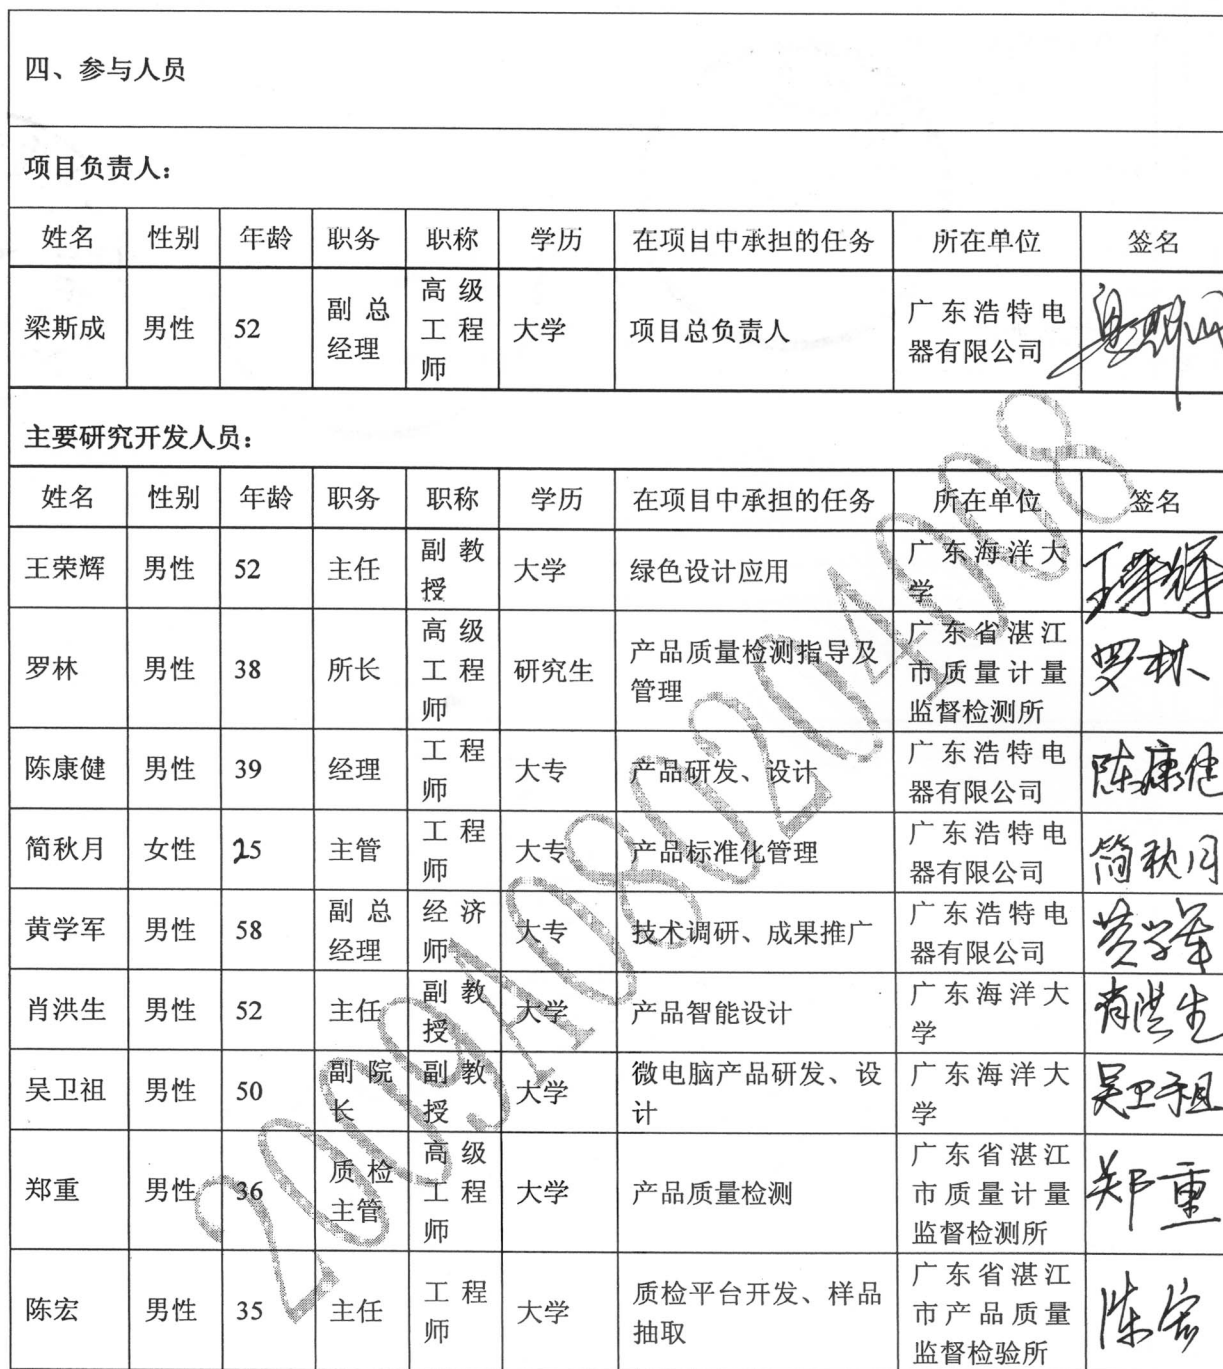 四、参与人员
项目负责人：
姓名 性别 年龄 职务 职称 学历 在项目中承担的任务 所在单位 签名
梁斯成 男性 52 副总经理 高级工程师 大学 项目总负责人 广东浩特电器有限公司 梁斯成
主要研究开发人员：
姓名 性别 年龄 职务 职称 学历 在项目中承担的任务 所在单位 签名
王荣辉 男性 52 主任 副教授 大学 绿色设计应用 广东海洋大学 王荣辉
罗林 男性 38 所长 高级工程师 研究生 产品质量检测指导及管理 广东省湛江市质量计量监督检测所 罗林
陈康健 男性 39 经理 工程师 大专 产品研发、设计 广东浩特电器有限公司 陈康健
简秋月 女性 25 主管 工程师 大专 产品标准化管理 广东浩特电器有限公司 简秋月
黄学军 男性 58 副总经理 经济师 大专 技术调研、成果推广 广东浩特电器有限公司 黄学军
肖洪生 男性 52 主任 副教授 大学 产品智能设计 广东海洋大学 肖洪生
吴卫祖 男性 50 副院长 副教授 大学 微电脑产品研发、设计 广东海洋大学 吴卫祖
郑重 男性 36 质检主管 高级工程师 大学 产品质量检测 广东省湛江市质量计量监督检测所 郑重
陈宏 男性 35 主任 工程师 大学 质检平台开发、样品抽取 广东省湛江市产品质量监督检验所 陈宏
2009A080204008